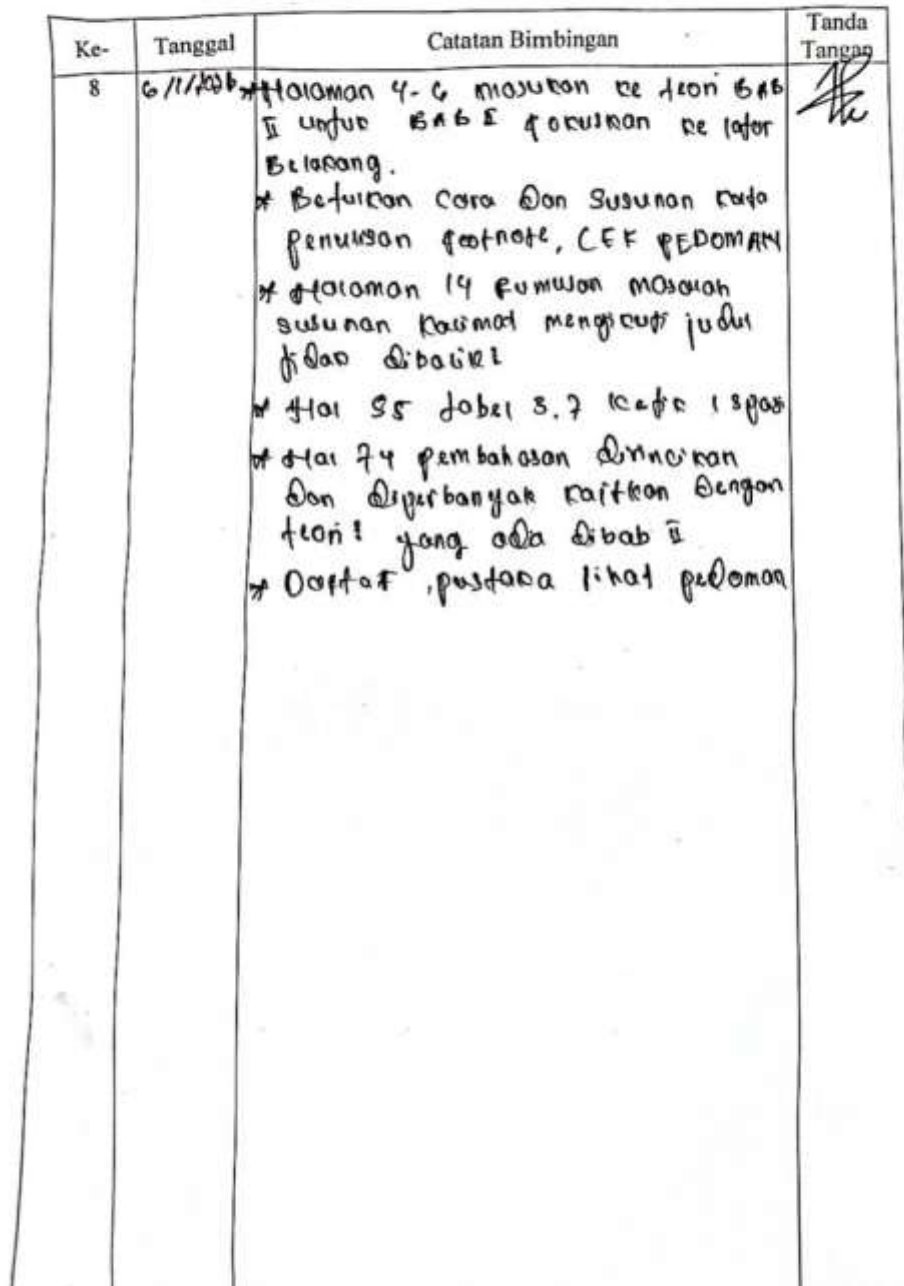 Ke- Tanggal Catatan Bimbingan Tanda Tangan
8 6/1/2026 * Halaman 4-6 masukan ke teori BAB
II untuk BAB I fokuskan ke latar
Belakang.
* Betulkan Cara Dan Susunan kata
penulisan footnote, CEK PEDOMAN
* Halaman 14 Rumusan masalah
susunan kalimat mengikuti judul
tidak dibalik2
* Hal 55 tabel 3.7 ketik 1 spasi
* Hal 74 pembahasan Dirincikan
Dan Diperbanyak kaitkan Dengan
teori2 yang ada dibab II
* Daftar pustaka lihat pedoman